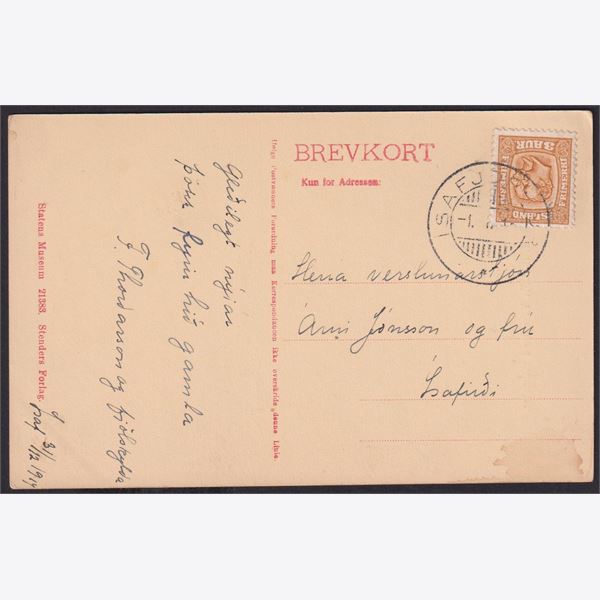 BREVKORT
Kun for Adressen:
3 AUR
FRIMERKI
ÍSLAND
ÍSAFJ
Herra verslunarstjóri
Árni Jónsson og frú
Ísafirði
Gleðilegt nýjár
þökk fyrir hið gamla
F. Thordarson og fjölskylda
31/12 1914
Statens Museum 21383. Stenders Forlag.
Ifølge Postvæsenets Forordning maa Korrespondancen ikke overskride denne Linie.